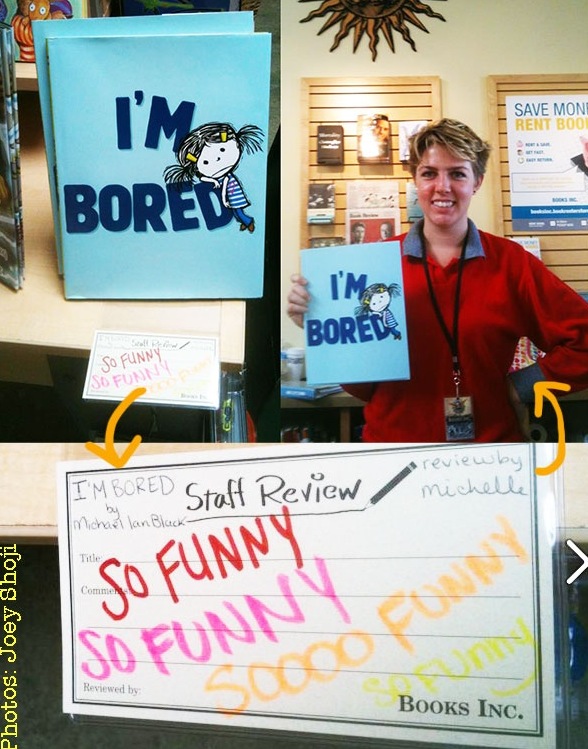 I'M
BORED
Staff Review
SO FUNNY
SO FUNNY
SOOO FUNNY
BOOKS INC.
SAVE MON
RENT BOO
RENT & SAVE.
GET FAST.
EASY RETURN.
BOOKS INC.
Book Review
I'M
BORED
I'M BORED
by
Michael Ian Black
Staff Review
review by
michelle
Title:
SO FUNNY
Comments:
SO FUNNY
SOOOO FUNNY
SO FUNNY
Reviewed by:
BOOKS INC.
Photos: Joey Shoji